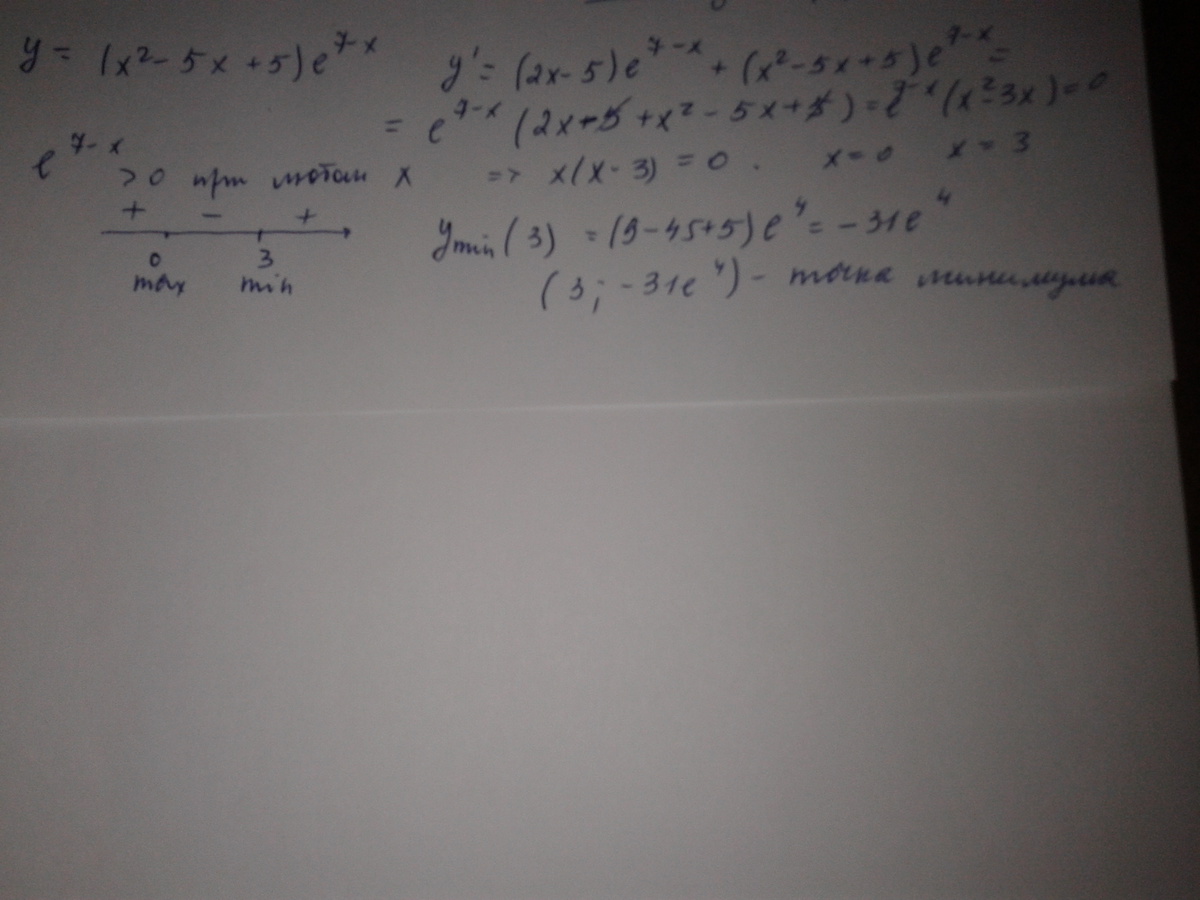 y = (x² - 5x + 5)e^{7-x}   y' = (2x - 5)e^{7-x} + (x² - 5x + 5)e^{7-x} =
= e^{7-x}(2x - 5 + x² - 5x + 5) = e^{7-x}(x² - 3x) = 0
e^{7-x} > 0 при любом x   => x(x - 3) = 0 .   x = 0   x = 3
+ - +
0 3
max min
y_{min}(3) = (9 - 45 + 5)e⁴ = -31e⁴
(3; -31e⁴) - точка минимума